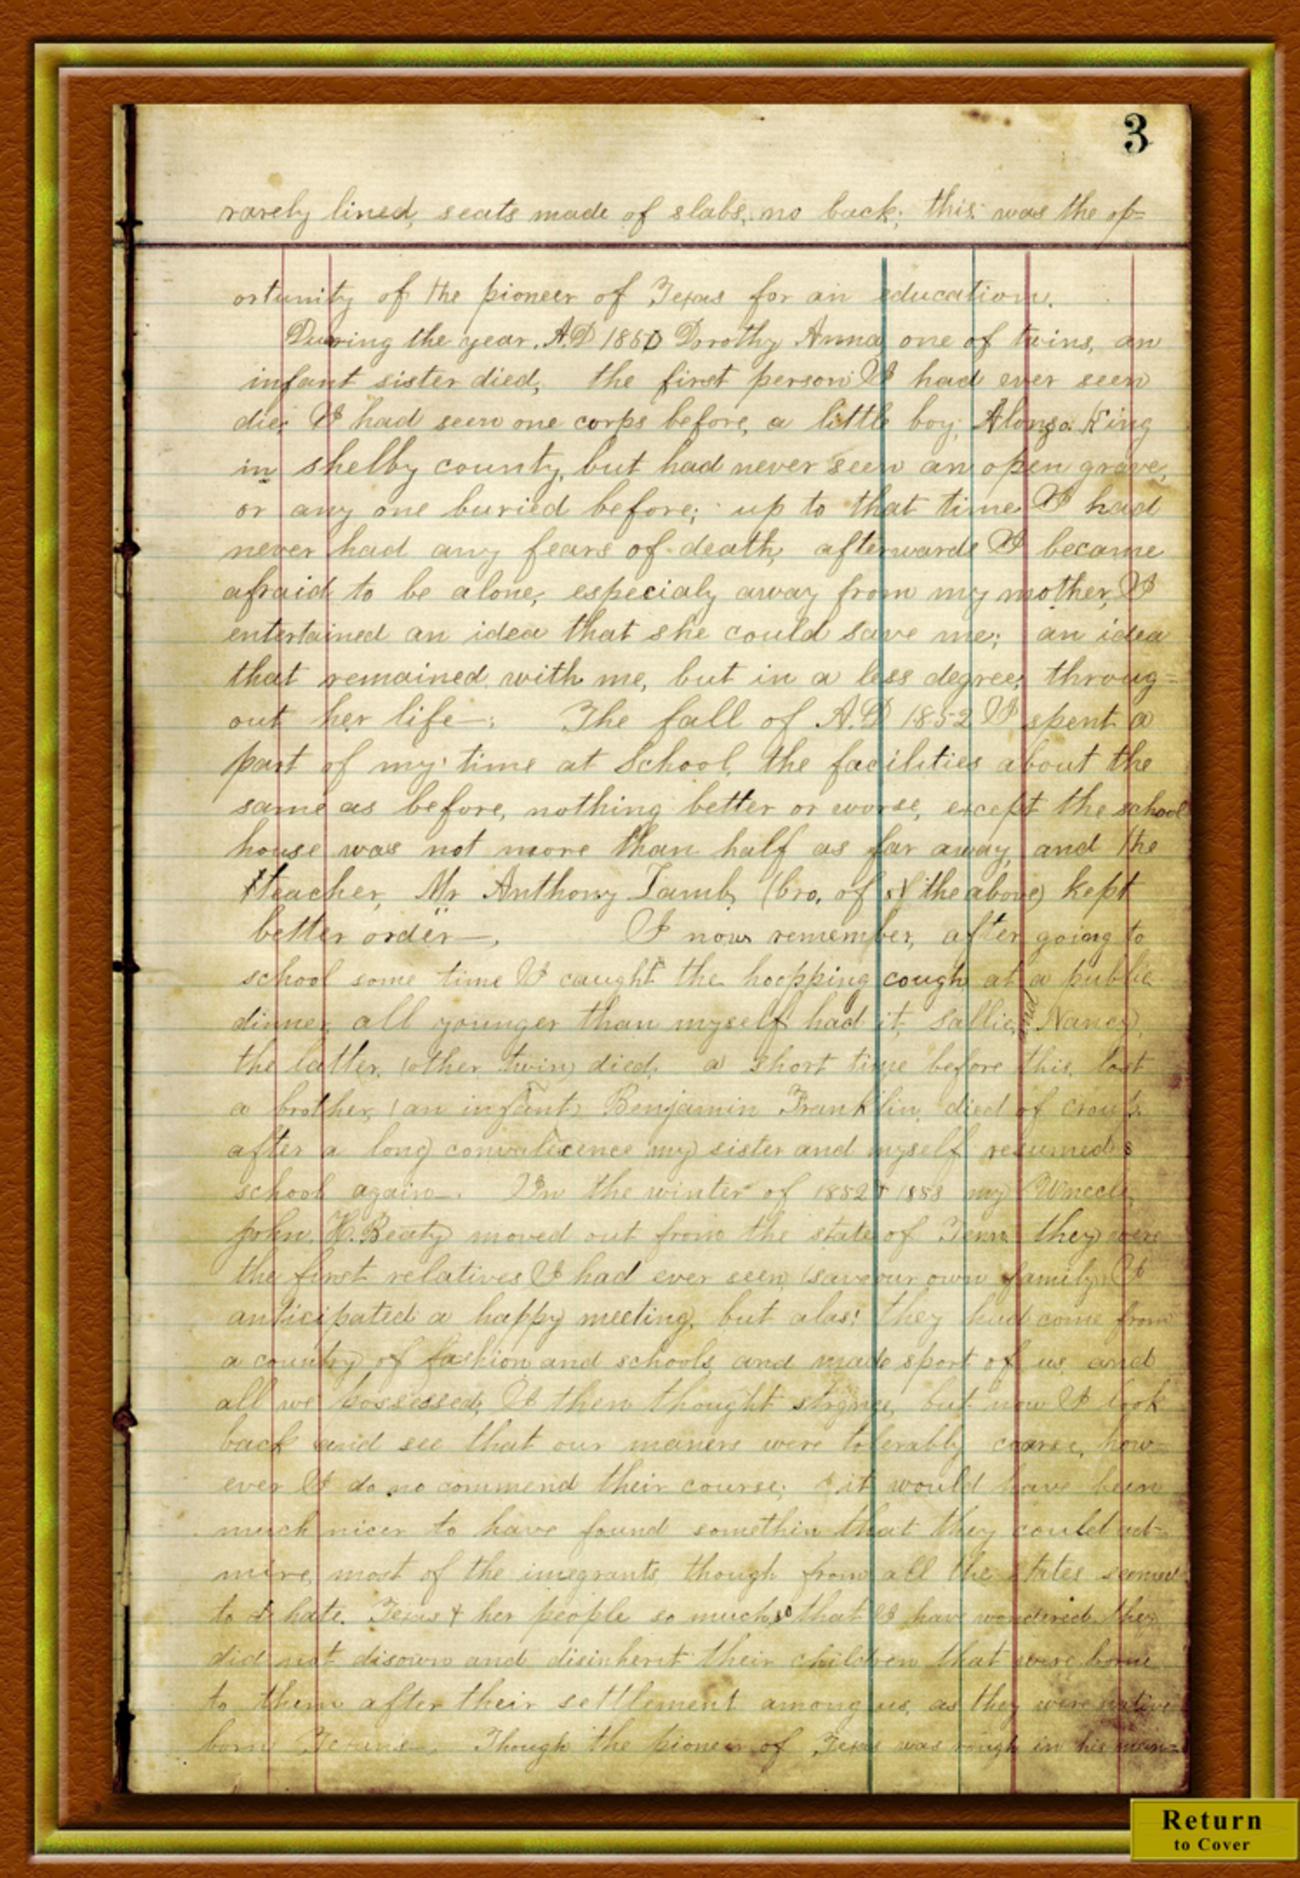 3
rarely lined, seats made of slabs, no back; this was the op=
ortunity of the pioneer of Texas for an education.
During the year, A.D 1850 Dorothy Anna, one of twins, an
infant sister died, the first person I had ever seen
die; I had seen one corps before, a little boy, Alonzo King
in shelby county, but had never seen an open grave,
or any one buried before; up to that time I had
never had any fears of death, afterwards I became
afraid to be alone, especialy away from my mother, I
entertained an idea that she could save me; an idea
that remained with me, but in a less degree, throug=
out her life—; The fall of A.D 1852 I spent a
part of my time at School, the facilities about the
same as before, nothing better or worse, except the school
house was not more than half as far away, and the
teacher, Mr Anthony Lamb, (bro, of of the above) kept
better order—, I now remember, after going to
school some time I caught the hoopping cough, at a public
dinner, all younger than myself had it, Sallie and Nancy,
the latter, (other twin) died, a short time before this, lost
a brother, (an infant) Benjamin Franklin, died of croup.
after a long convalicence my sister and myself resumed
school again—. In the winter of 1852 & 1853 my Unccle,
John, H. Beaty moved out from the state of Tenn. they were
the first relatives I had ever seen (save our own family) I
anticipated a happy meeting, but alas! they had come from
a country of fashion and schools and made sport of us and
all we possessed; I then thought strange, but now I look
back and see that our maners were tolerably coarse, how=
ever I do no commend their course; it would have been
much nicer to have found somethin that they could ad=
mire, most of the imegrants though from all the states seemed
to hate Texas & her people so much so that I have wondered they
did not disown and disinherit their children that were born
to them after their settlement among us, as they were native
born Texans—. Though the pioneer of Texas was rough in his man=
Return
to Cover